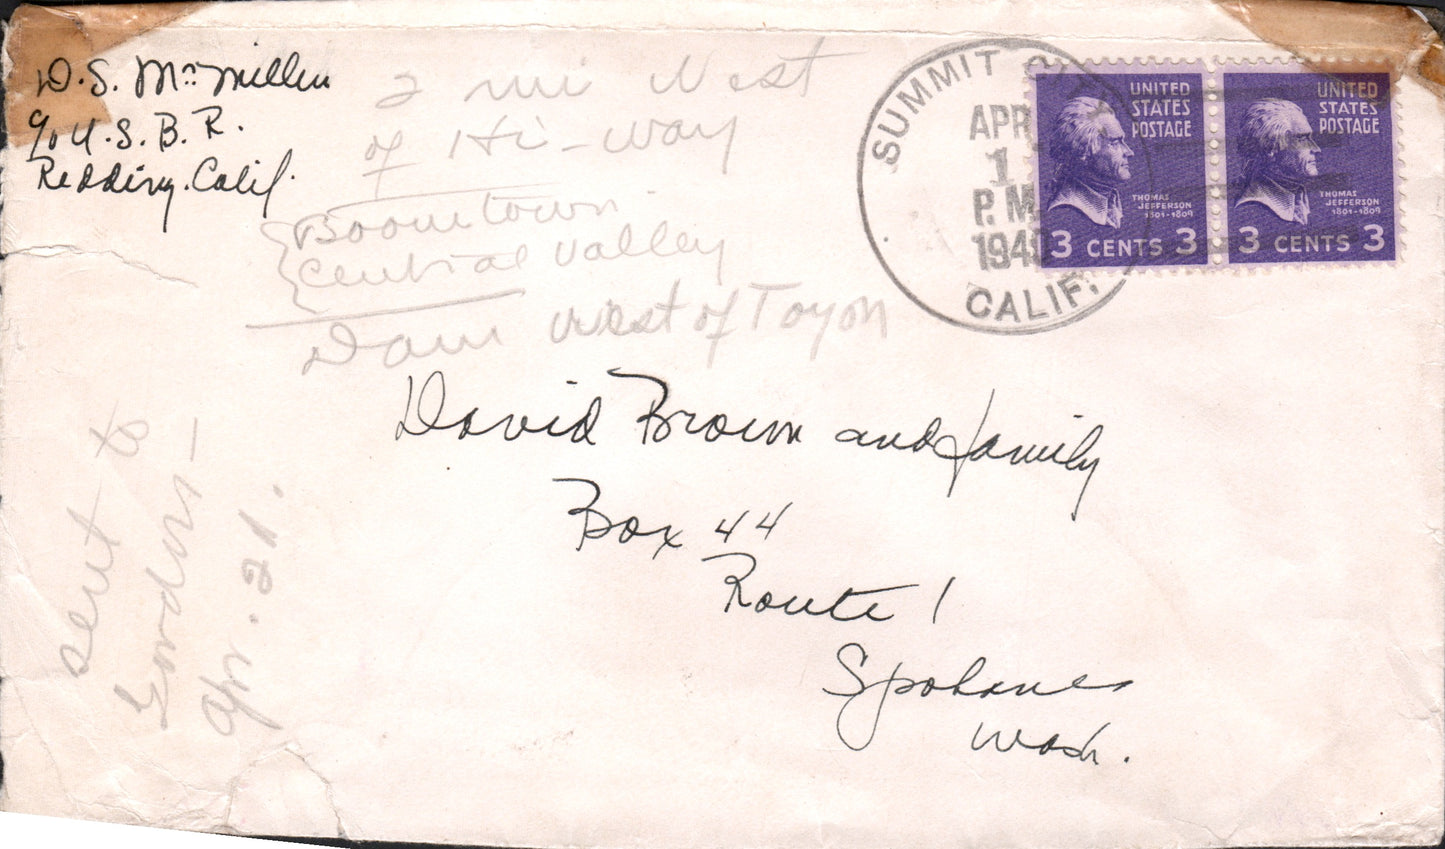 D. S. McMillen
c/o U.S.B.R.
Redding, Calif.
2 mi West
of Hi-way
Boomtown
Central Valley
Dam west of Toyon
SUMMIT CITY
APR
1
P.M.
194
CALIF.
UNITED
STATES
POSTAGE
THOMAS
JEFFERSON
1801-1809
3 CENTS 3
UNITED
STATES
POSTAGE
THOMAS
JEFFERSON
1801-1809
3 CENTS 3
David Brown and family
Box 44
Route 1
Spokane
Wash.
sent to
Apr. 21.